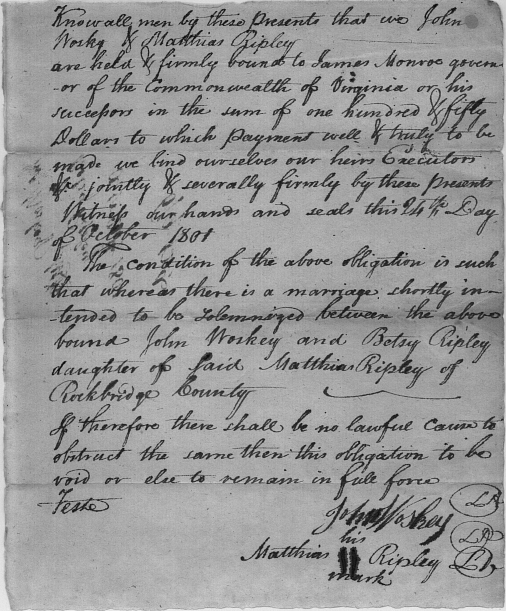 Know all men by these Presents that we John
Wosky & Matthias Ripley
are held & firmly bound to James Monroe govern-
-or of the Commonwealth of Virginia or his
successors in the sum of one hundred & fifty
Dollars to which payment well & truly to be
made we bind ourselves our heirs Executors
&c jointly & severally firmly by these Presents
Witness our hands and seals this 24th Day
of October 1801
The condition of the above obligation is such
that whereas there is a marriage shortly in-
-tended to be solemnézed between the above
bound John Woskey and Betsy Ripley
daughter of said Matthias Ripley of
Rockbridge County
If therefore there shall be no lawful cause to
obstruct the same then this obligation to be
void or else to remain in full force
Teste
John Woskey LS
his LS
Matthias Ripley LS
mark